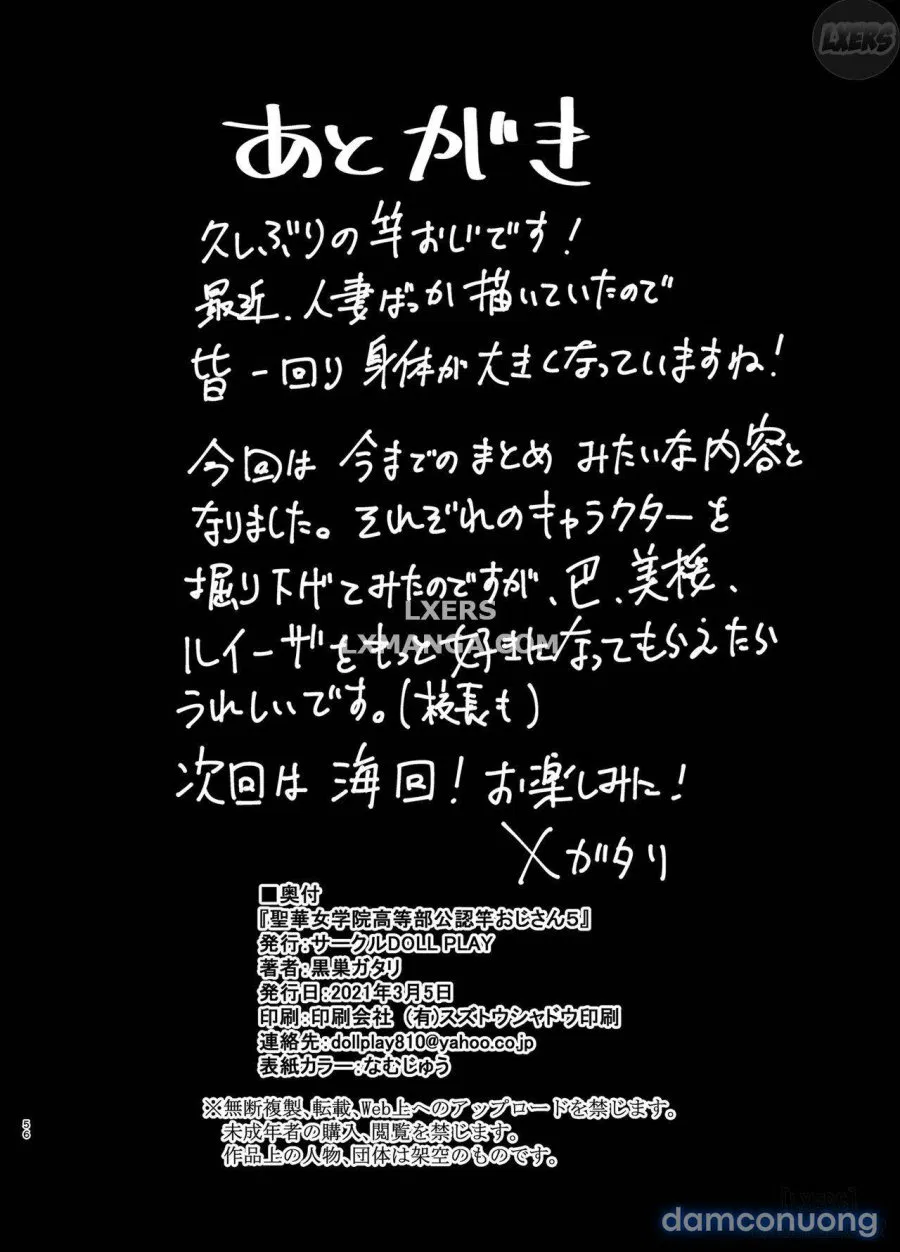 LXERS
あとがき
久しぶりの竿おじです!
最近、人妻ばっか描いていたので
皆一回り身体が大きくなっていますね!
今回は今までのまとめみたいな内容と
なりました。それぞれのキャラクターを
掘り下げてみたのですが、巴、美桜、
LXERS
ルイーザをもっと好きになってもらえたら
LXMANGA.COM
うれしいです。(校長も)
次回は海回!お楽しみに!
メガタリ
■奥付
『聖華女学院高等部公認竿おじさん5』
発行:サークルDOLL PLAY
著者:黒巣ガタリ
発行日:2021年3月5日
印刷:印刷会社 (有)スズトウシャドウ印刷
連絡先:dollplay810@yahoo.co.jp
表紙カラー:なむじゅう
※無断複製、転載、Web上へのアップロードを禁じます。
未成年者の購入、閲覧を禁じます。
作品上の人物、団体は架空のものです。
56
damconuong